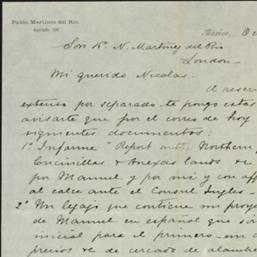 Pablo Martinez del Rio
México, O
Son Dn. N. Martínez del Rio
London.-
Mi querido Nicolas.
A reserv
extenso por separado te pongo estas
avisarte que por el correo de hoy
siguientes documentos:
1º Informe "Report on the Northern
Encinillas & Anexas lands &c
por Manuel y por mi y con aff
al calce ante el Consul Ingles -
2º Un legajo que contiene mi proye
de Manuel en español que sir
inicial para el primero - un
precios &c de cercado de alambr